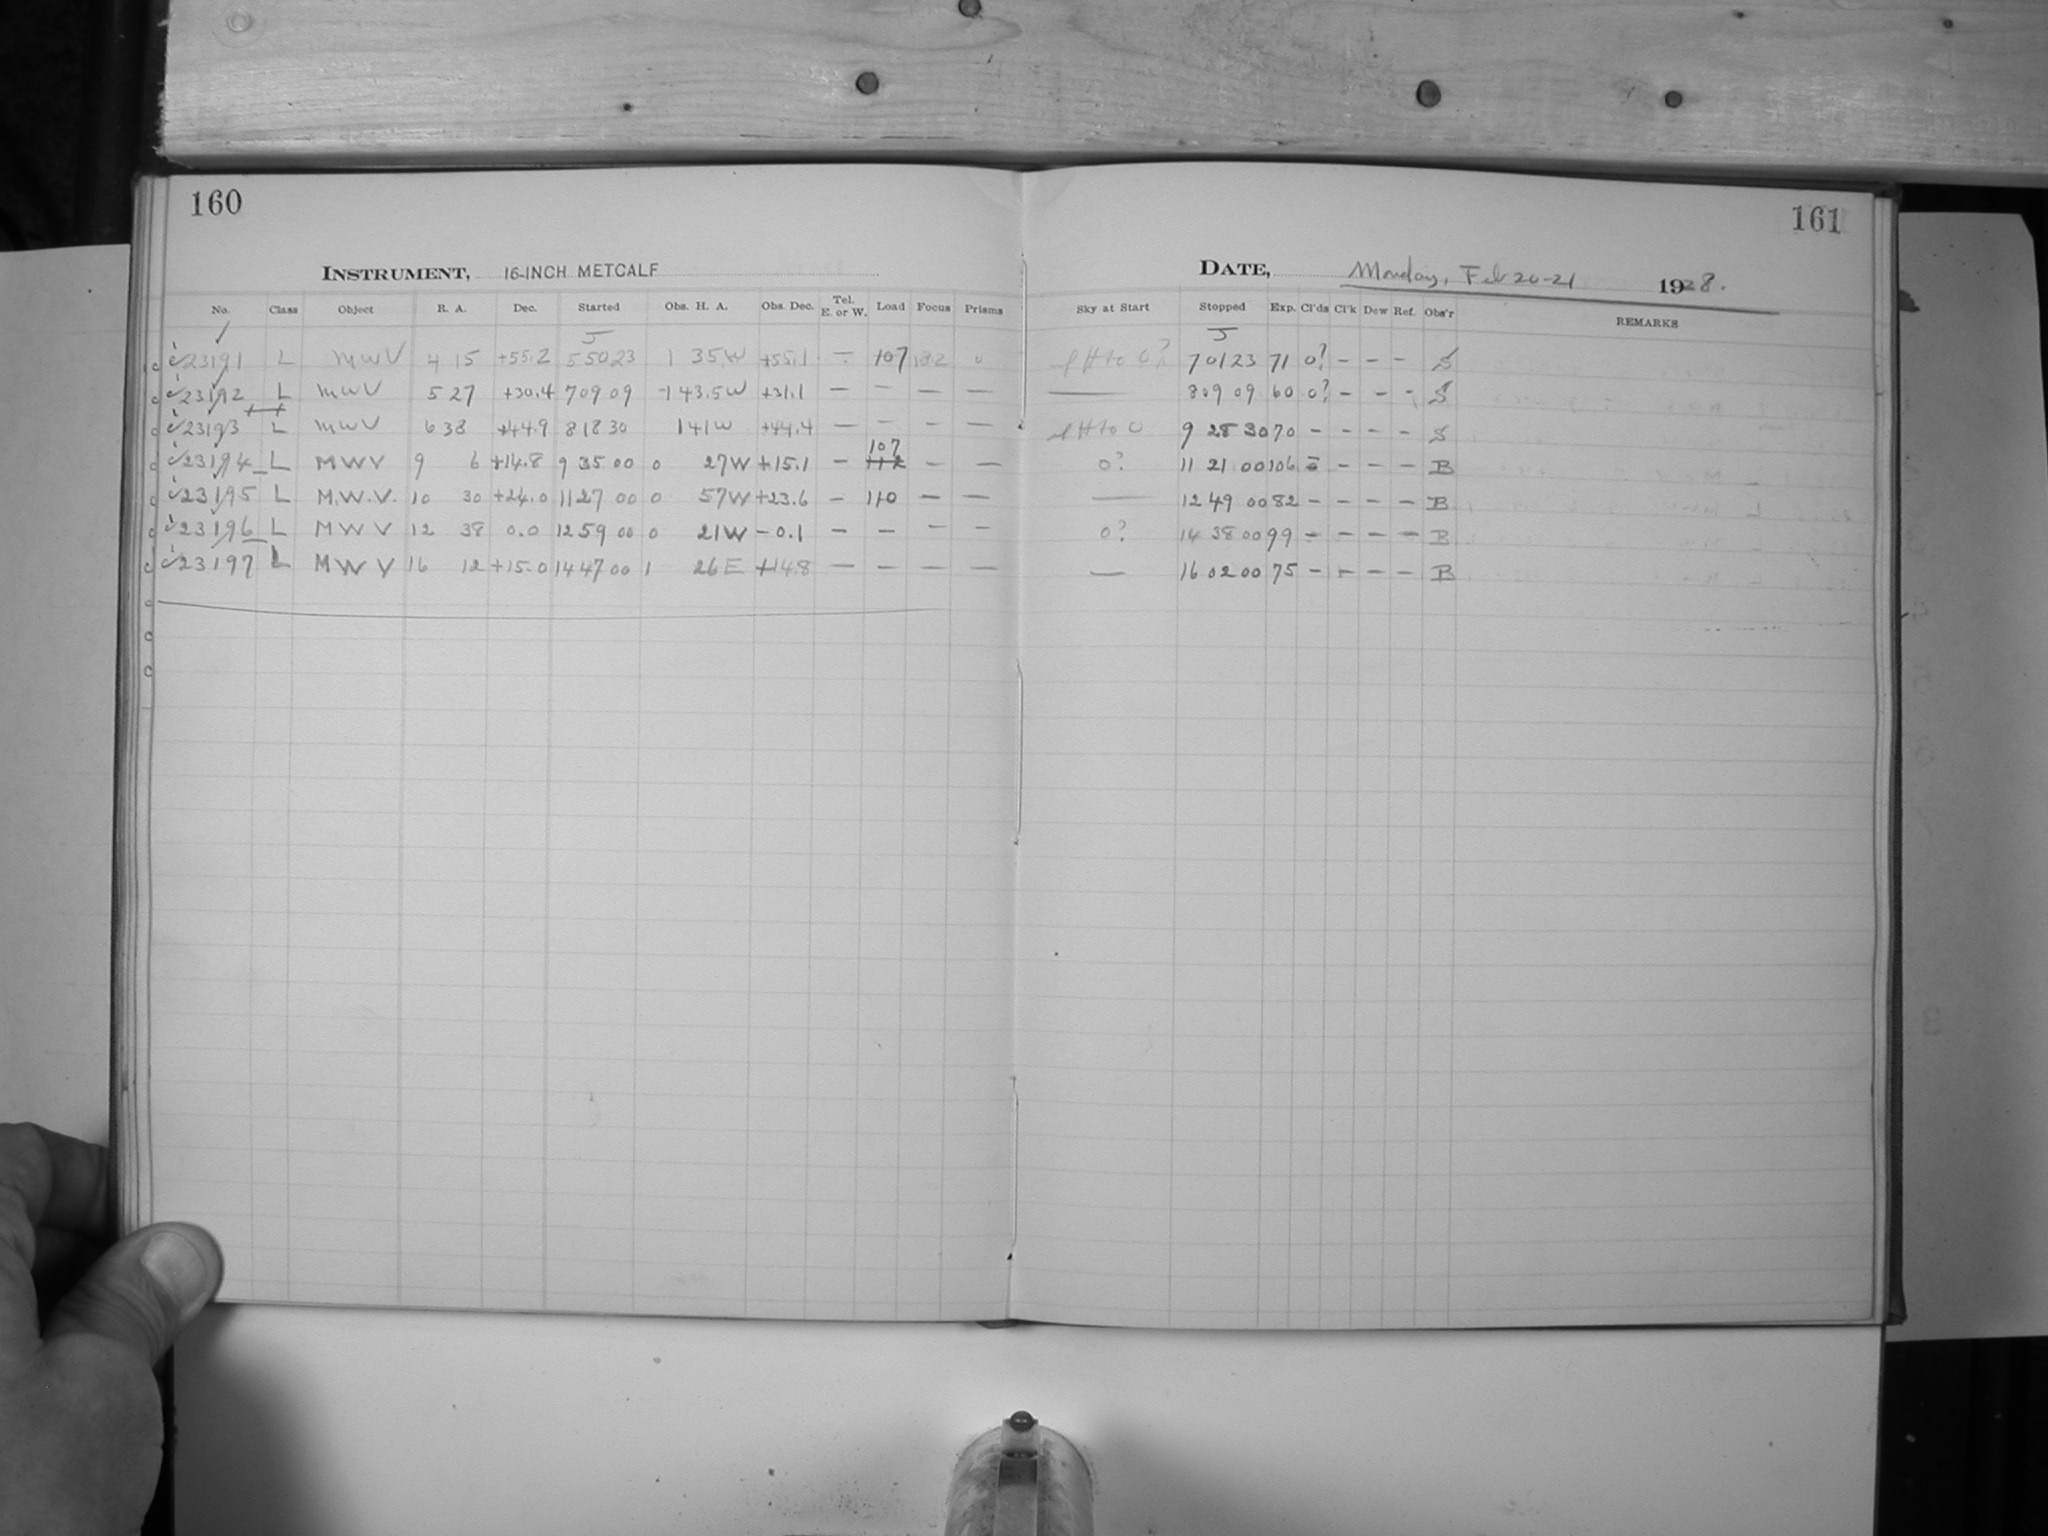 160
161
INSTRUMENT, 16-INCH METCALF
DATE, Monday, Feb 20-21 1928.
No. Class Object R. A. Dec. Started Obs. H. A. Obs. Dec. Tel. E. or W. Load Focus Prisms Sky at Start Stopped Exp. Cl'ds Cl'k Dew Ref. Obs'r REMARKS
J J
23191 L MWV 4 15 +55.2 5 50 23 1 35W +55.1 — 107 182 0 7 01 23 71 0? — — — S
23192 L MWV 5 27 +30.4 7 09 09 1 43.5W +31.1 — — — — — 8 09 09 60 0? — — — S
23193 L MWV 6 38 +44.9 8 18 30 1 41W +44.4 — — — — 9 28 30 70 — — — — S
107
23194 L MWV 9 6 +14.8 9 35 00 0 27W +15.1 — 112 — — 0? 11 21 00 106 — — — B
23195 L M.W.V. 10 30 +24.0 11 27 00 0 57W +23.6 — 110 — — — 12 49 00 82 — — — — B
23196 L MWV 12 38 0.0 12 59 00 0 21W -0.1 — — — — 0? 14 38 00 99 — — — — B
23197 L MWV 16 12 +15.0 14 47 00 1 26E +14.8 — — — — — 16 02 00 75 — — — — B